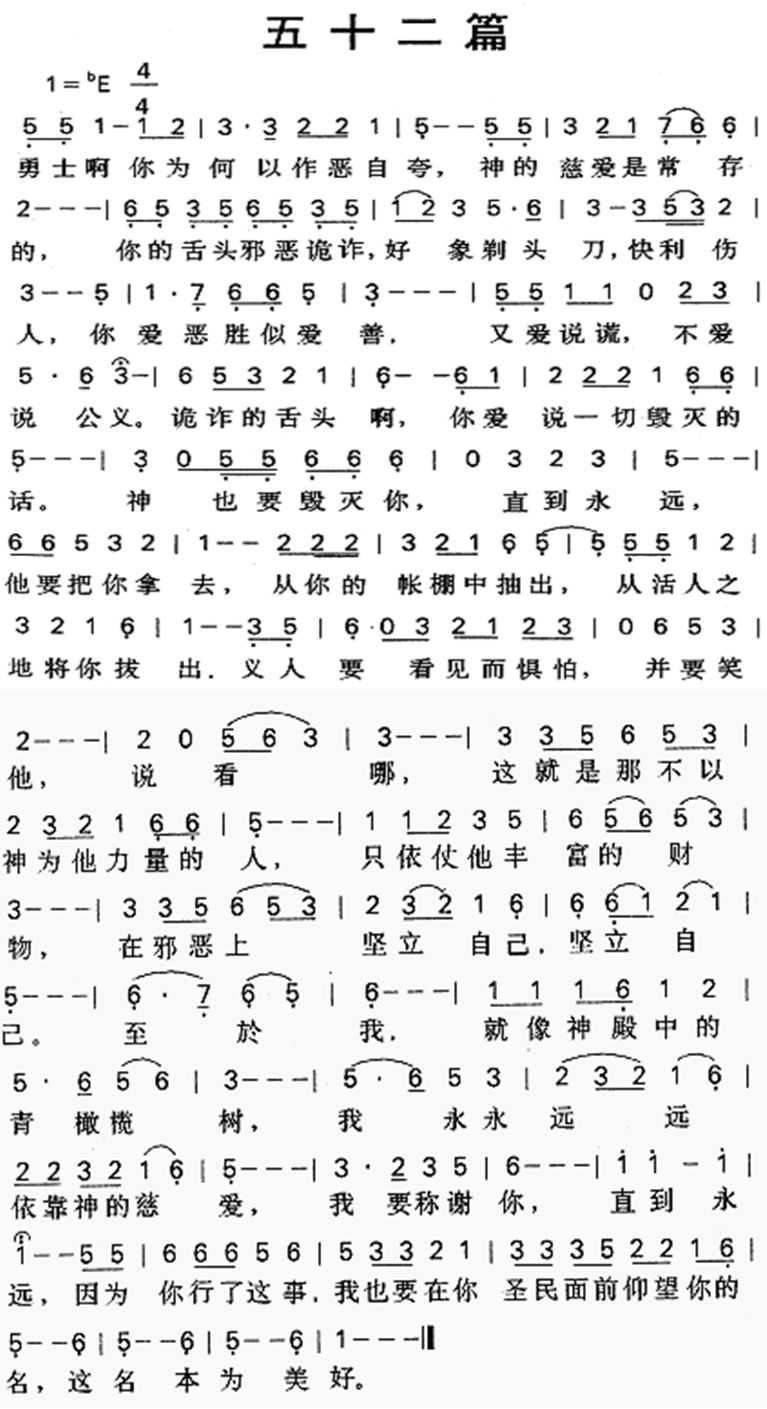 五十二篇
1=ᵇE 4/4
5 5 1-1 2 | 3·3 2 2 1 | 5--5 5 | 3 2 1 7 6 6 |
勇士啊你为何以作恶自夸，神的慈爱是常存
2---| 6 5 3 5 6 5 3 5 | 1 2 3 5·6 | 3-3 5 3 2 |
的，你的舌头邪恶诡诈，好象剃头刀，快利伤
3--5 | 1·7 6 6 5 | 3---| 5 5 1 1 0 2 3 |
人，你爱恶胜似爱善．又爱说谎，不爱
5·6 3-| 6 5 3 2 1 | 6--6 1 | 2 2 2 1 6 6 |
说公义。诡诈的舌头啊，你爱说一切毁灭的
5---| 3 0 5 5 6 6 6 | 0 3 2 3 | 5---|
话。神也要毁灭你，直到永远，
6 6 5 3 2 | 1--2 2 2 | 3 2 1 6 5 | 5 5 5 1 2 |
他要把你拿去，从你的帐棚中抽出，从活人之
3 2 1 6 | 1--3 5 | 6·0 3 2 1 2 3 | 0 6 5 3 |
地将你拔出．义人要看见而惧怕，并要笑
2---| 2 0 5 6 3 | 3---| 3 3 5 6 5 3 |
他，说看哪，这就是那不以
2 3 2 1 6 6 | 5---| 1 1 2 3 5 | 6 5 6 5 3 |
神为他力量的人，只依仗他丰富的财
3---| 3 3 5 6 5 3 | 2 3 2 1 6 | 6 6 1 2 1 |
物，在邪恶上坚立自己．坚立自
5---| 6·7 6 5 | 6---| 1 1 1 6 1 2 |
己。至於我．就像神殿中的
5·6 5 6 | 3---| 5·6 5 3 | 2 3 2 1 6 |
青橄榄树，我永永远远
2 2 3 2 1 6 | 5---| 3·2 3 5 | 6---| 1 1-1 |
依靠神的慈爱，我要称谢你，直到永
1--5 5 | 6 6 6 5 6 | 5 3 3 2 1 | 3 3 3 5 2 2 1 6 |
远，因为你行了这事．我也要在你圣民面前仰望你的
5--6 | 5--6 | 5--6 | 1---||
名，这名本为美好。